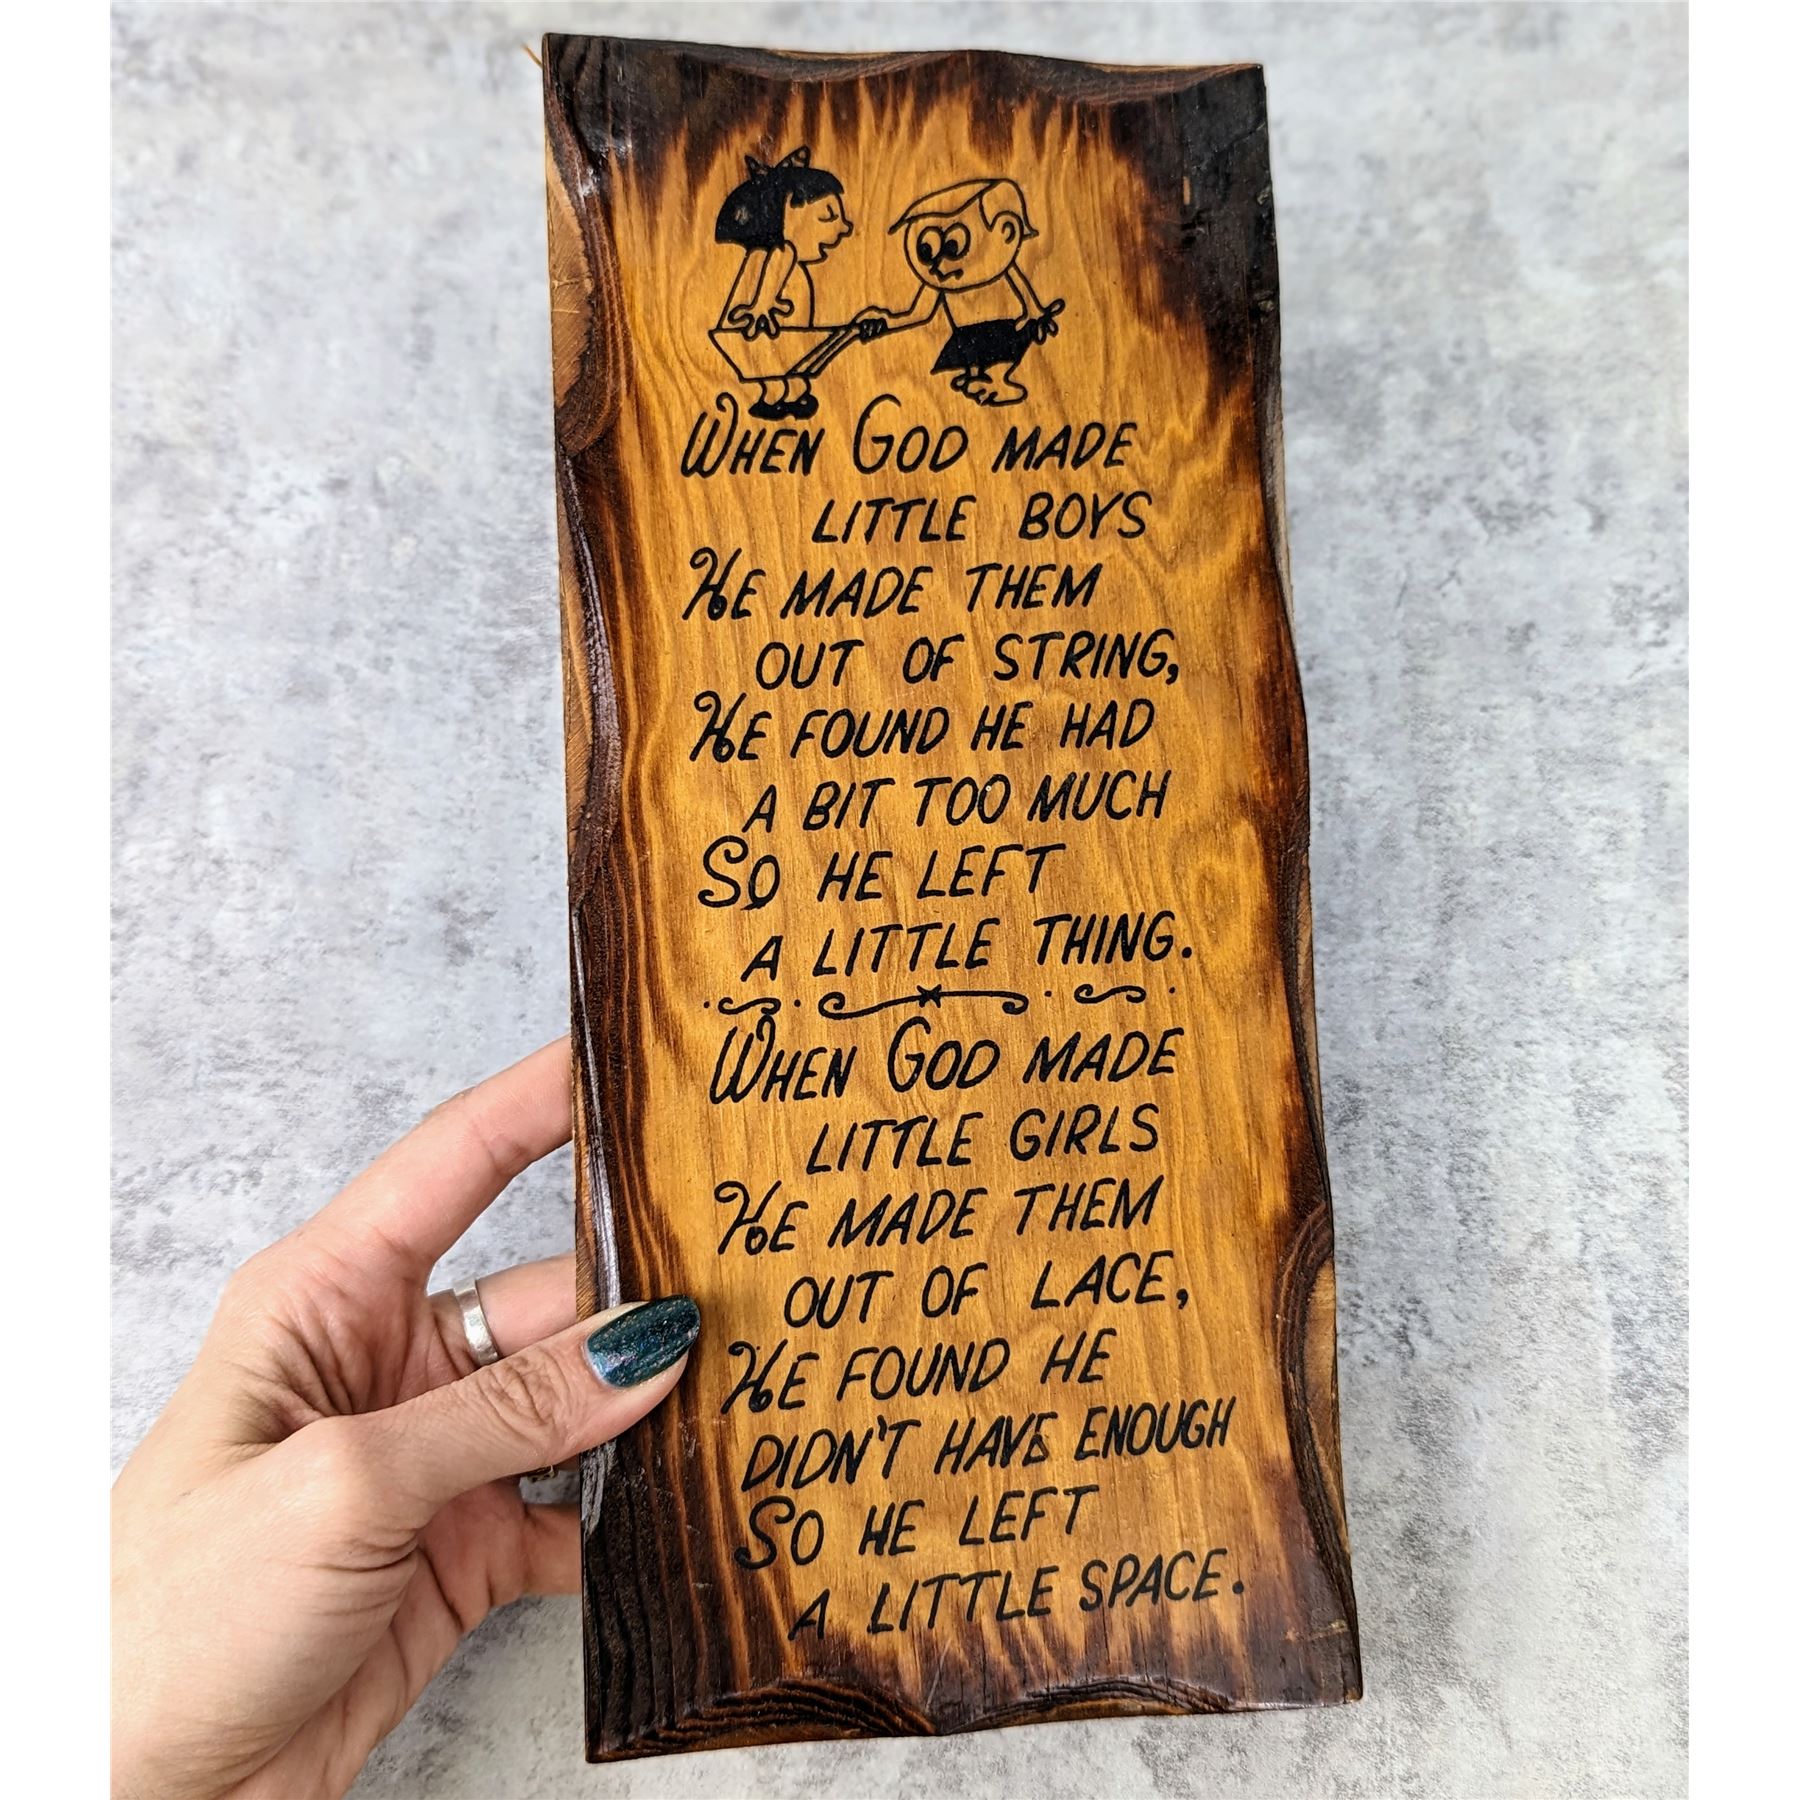 WHEN GOD MADE
LITTLE BOYS
HE MADE THEM
OUT OF STRING,
HE FOUND HE HAD
A BIT TOO MUCH
SO HE LEFT
A LITTLE THING.
WHEN GOD MADE
LITTLE GIRLS
HE MADE THEM
OUT OF LACE,
HE FOUND HE
DIDN'T HAVE ENOUGH
SO HE LEFT
A LITTLE SPACE.